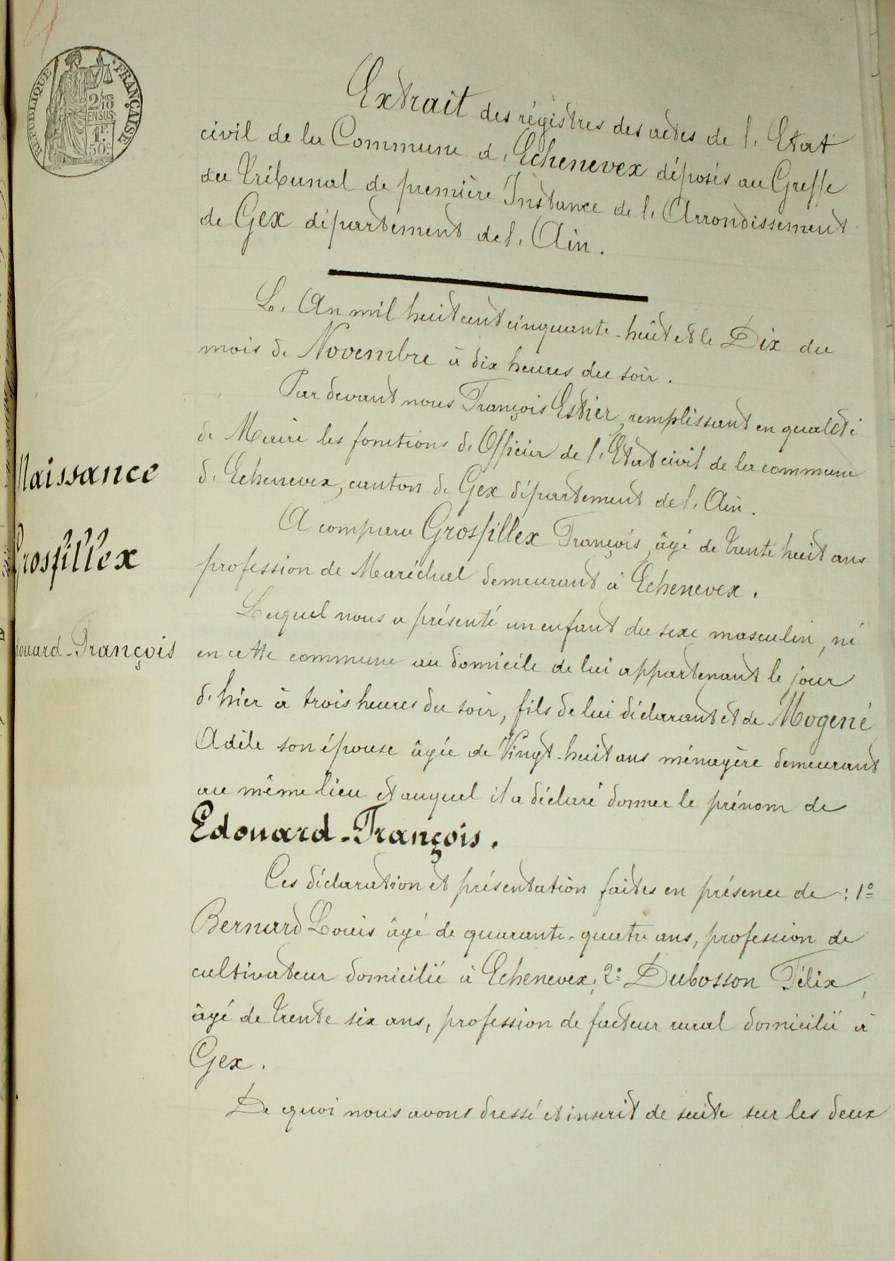 RÉPUBLIQUE FRANÇAISE
2/10
EN SUS
1F
50c
Extrait des régistres des actes de l'Etat
civil de la Commune d'Echenevex déposés au Greffe
du Tribunal de première Instance de l'Arrondissement
de Gex département de l'Ain.
L'An mil huit cent cinquante-huit et le Dix du
mois de Novembre à dix heures du soir.
Par devant nous François Estier, remplissant en qualité
de Maire les fonctions d'Officier de l'Etat civil de la commune
d'Echenevex, canton de Gex département de l'Ain.
Naissance
Grosfillex
Edouard-François
A comparu Grosfillex François, âgé de trente huit ans
profession de Maréchal demeurant à Echenevex.
Lequel nous a présenté un enfant du sexe masculin, né
en cette commune au domicile de lui appartenant le jour
d'hier à trois heures du soir, fils de lui déclarant et de Mogené
Adèle son épouse âgée de Vingt-huit ans ménagère demeurant
au même lieu et auquel il a déclaré donner le prénom de
Edouard-François.
Ces déclaration et présentation faites en présence de : 1°
Bernard Louis âgé de quarante-quatre ans, profession de
cultivateur domicilié à Echenevex; 2° Dubosson Félix,
âgé de trente six ans, profession de facteur rural domicilié à
Gex.
De quoi nous avons dressé et inscrit de suite sur les deux